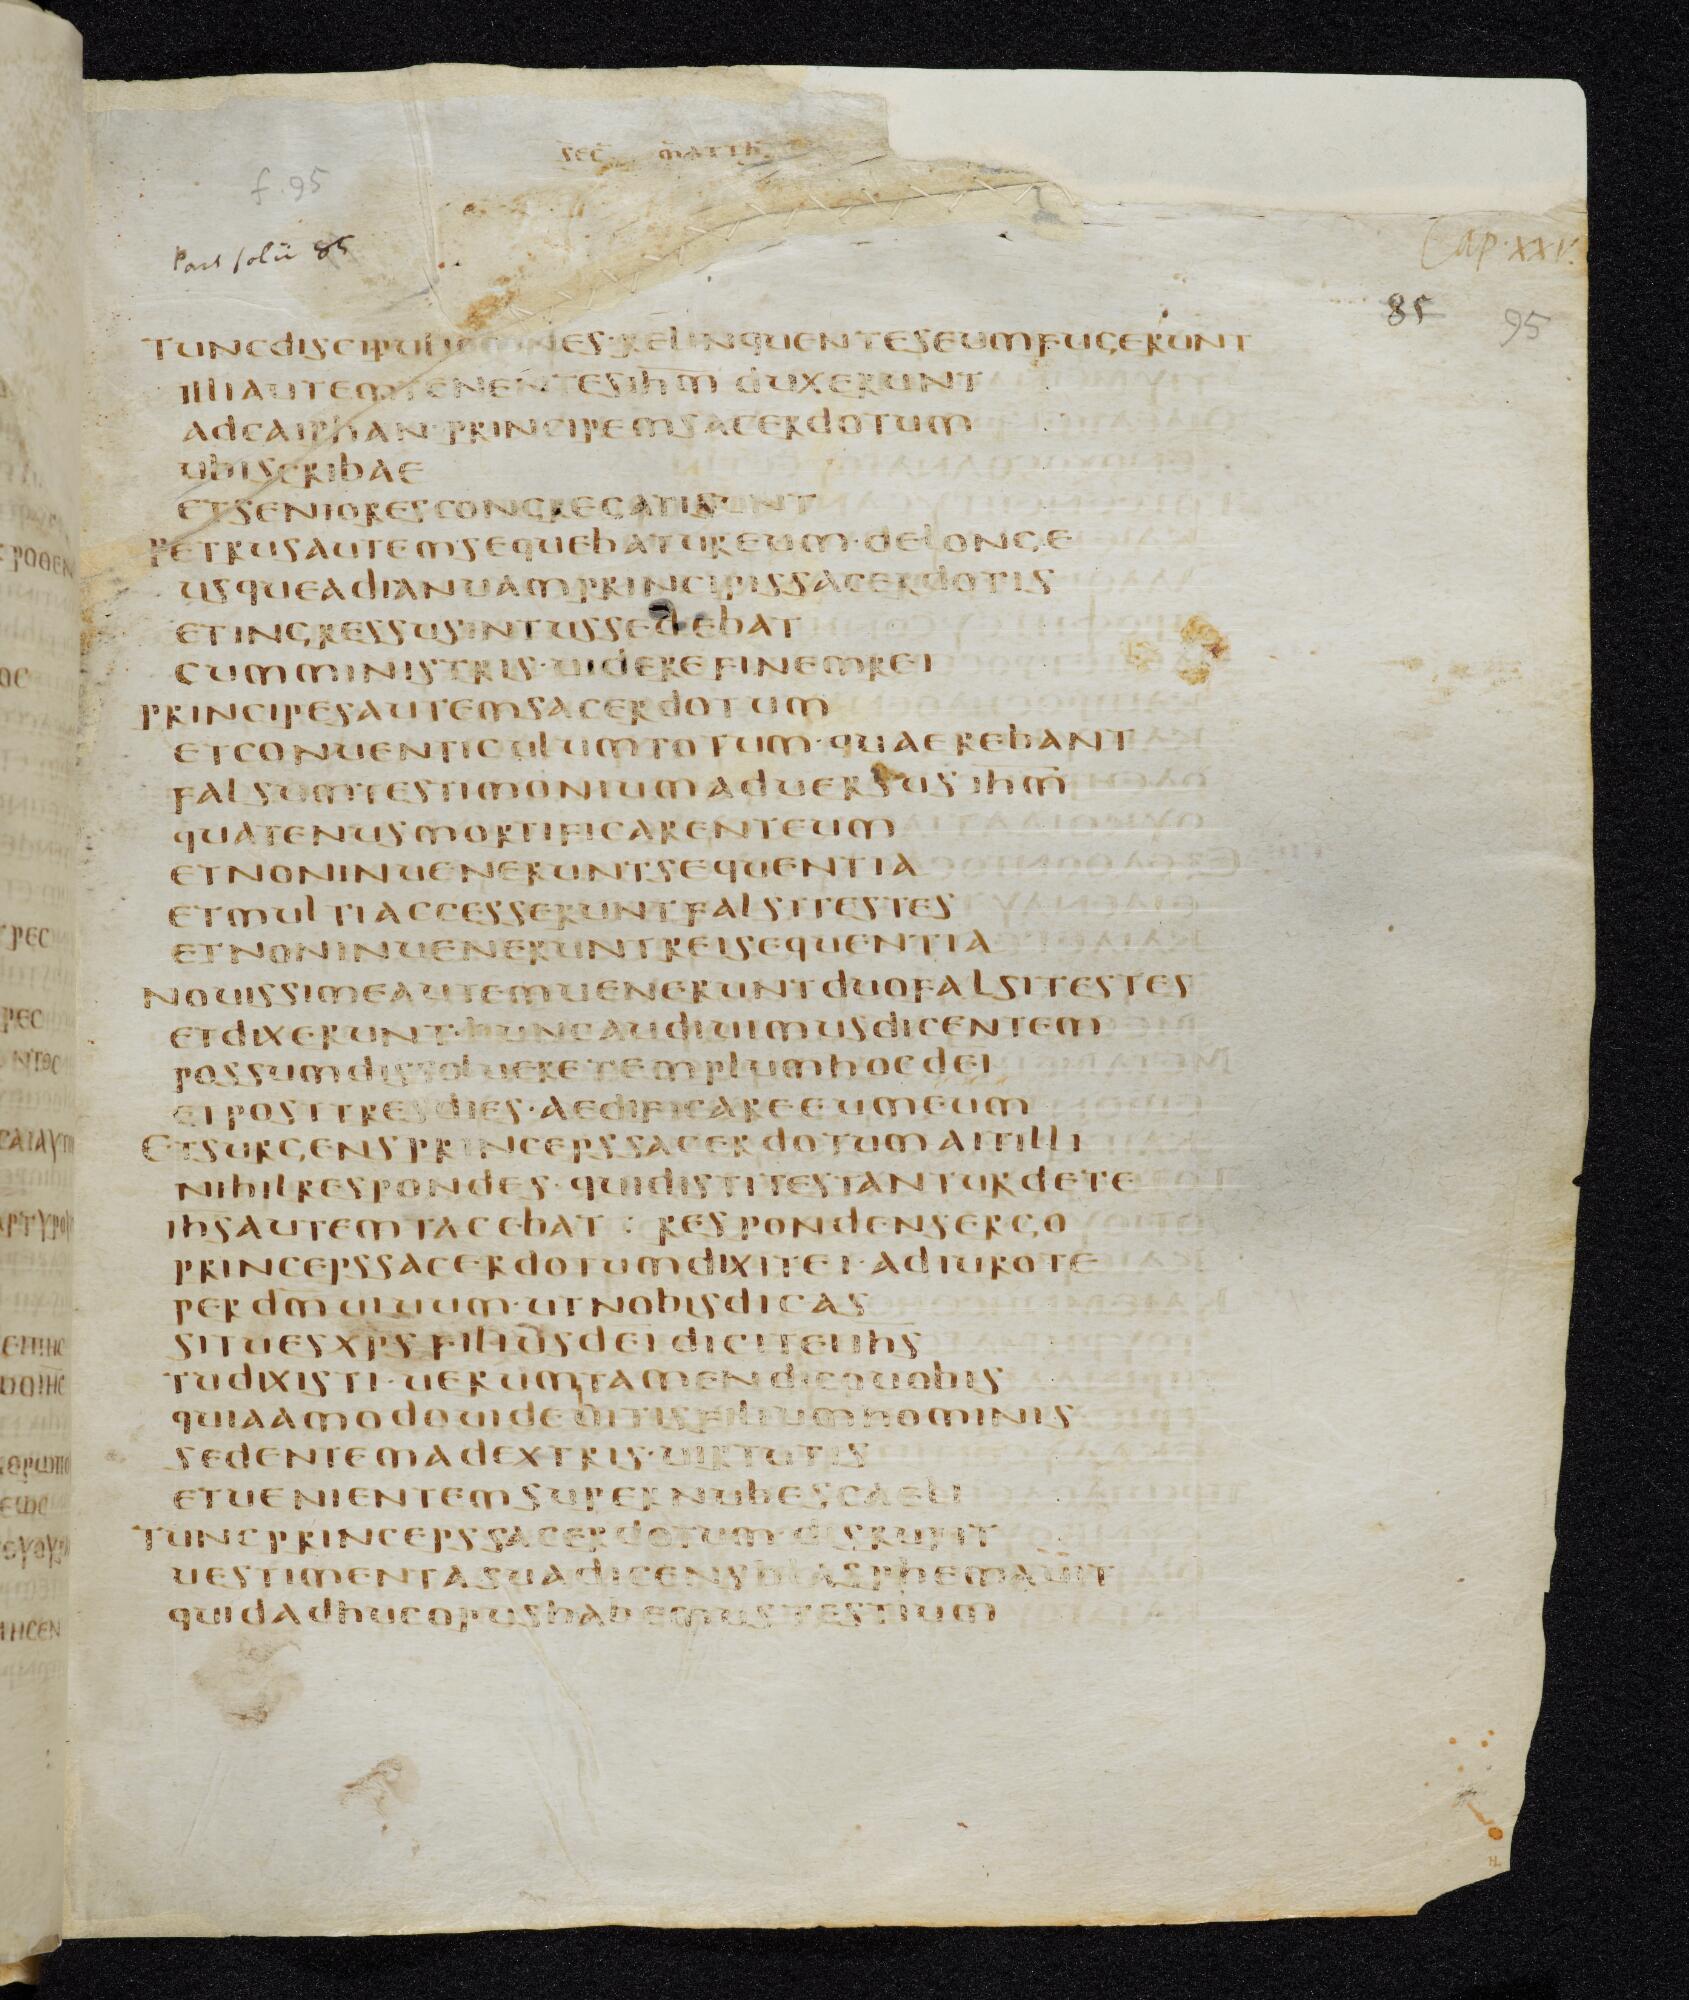 sec matth
f. 95
Post foliū 85
Cap. xxv.
85
95
tuncdiscipuliomnes·relinquenteseumfugerunt
illiautemtenentesihm̄ duxerunt
adcaiphan·principemsacerdotum
ubiscribae
etseniorescongregatisunt
petrusautemsequebatureum·delonge
usqueadianuamprincipissacerdotis
etingressusintussedebat
cumministris·uiderefinemrei
principesautemsacerdotum
etconuenticulumtotum·quaerebant
falsumtestimoniumaduersusihm̄
quatenusmortificarenteum
etnoninueneruntsequentia
etmultiaccesseruntfalsitestes
etnoninueneruntreisequentia
nouissimeautemueneruntduofalsitestes
etdixerunt·huncaudiuimusdicentem
possumdissolueretemplumhocdei
etposttresdies·aedificareeumeum
etsurgensprincepssacerdotumaitilli
nihilrespondes·quidistitestanturdete
ihsautemtacebat : respondensergo
princepssacerdotumdixitei·adiurote
perdm̄uiuum·utnobisdicas
situesxpsfiliusdeidiciteiihs
tudixisti·uerumtamendicouobis
quiaamodouidebitisfiliumhominis
sedentemadextris·uirtutis
etuenientemsupernubescaeli
tuncprincepssacerdotum·disrupit
uestimentasuadicensblasphemauit
quidadhucopushabemustestium